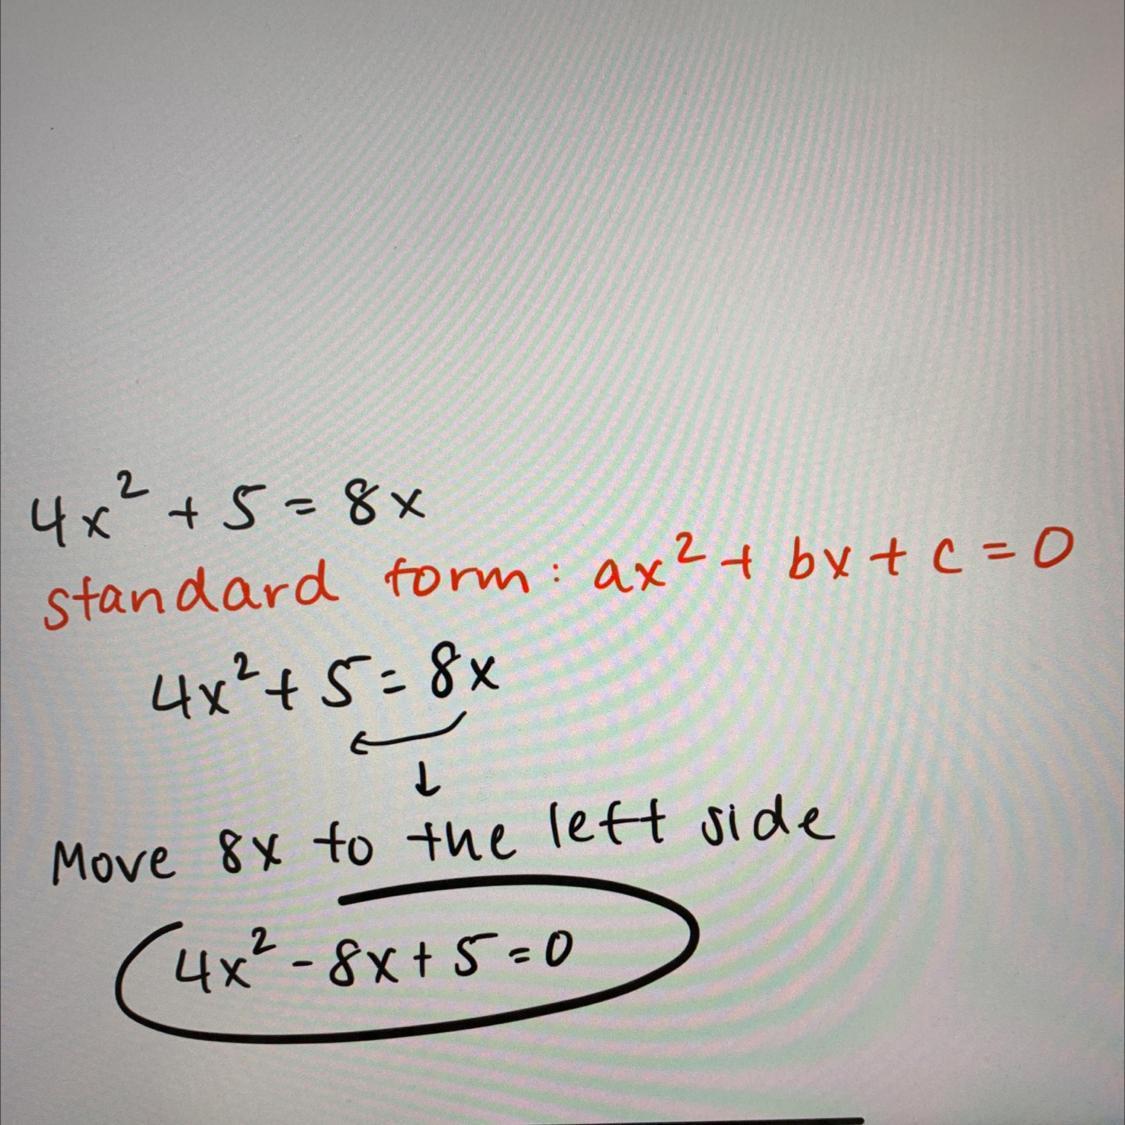 4x² + 5 = 8x
standard form: ax² + bx + c = 0
4x² + 5 = 8x
Move 8x to the left side
4x² - 8x + 5 = 0